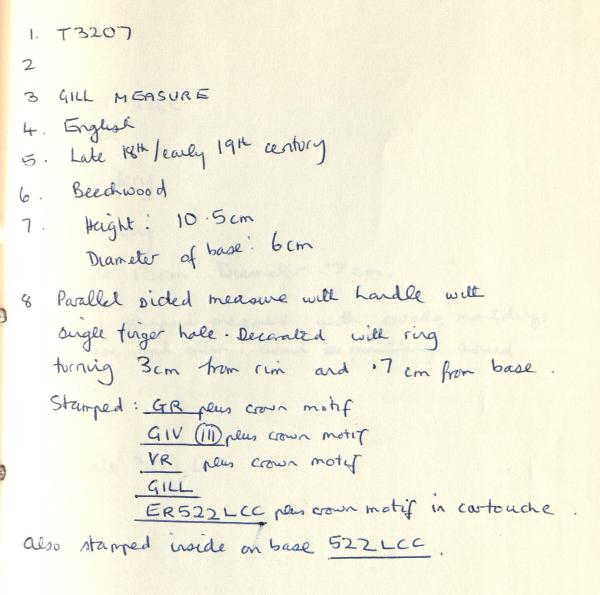 1. T3207
2
3 GILL MEASURE
4. English
5. Late 18th/early 19th century
6. Beechwood
7. Height: 10.5cm
Diameter of base: 6cm
8 Parallel sided measure with handle with
single finger hole. Decorated with ring
turning 3cm from rim and .7 cm from base.
Stamped: GR plus crown motif
GIV (III) plus crown motif
VR plus crown motif
GILL
ER522LCC plus crown motif in cartouche.
Also stamped inside on base 522LCC.